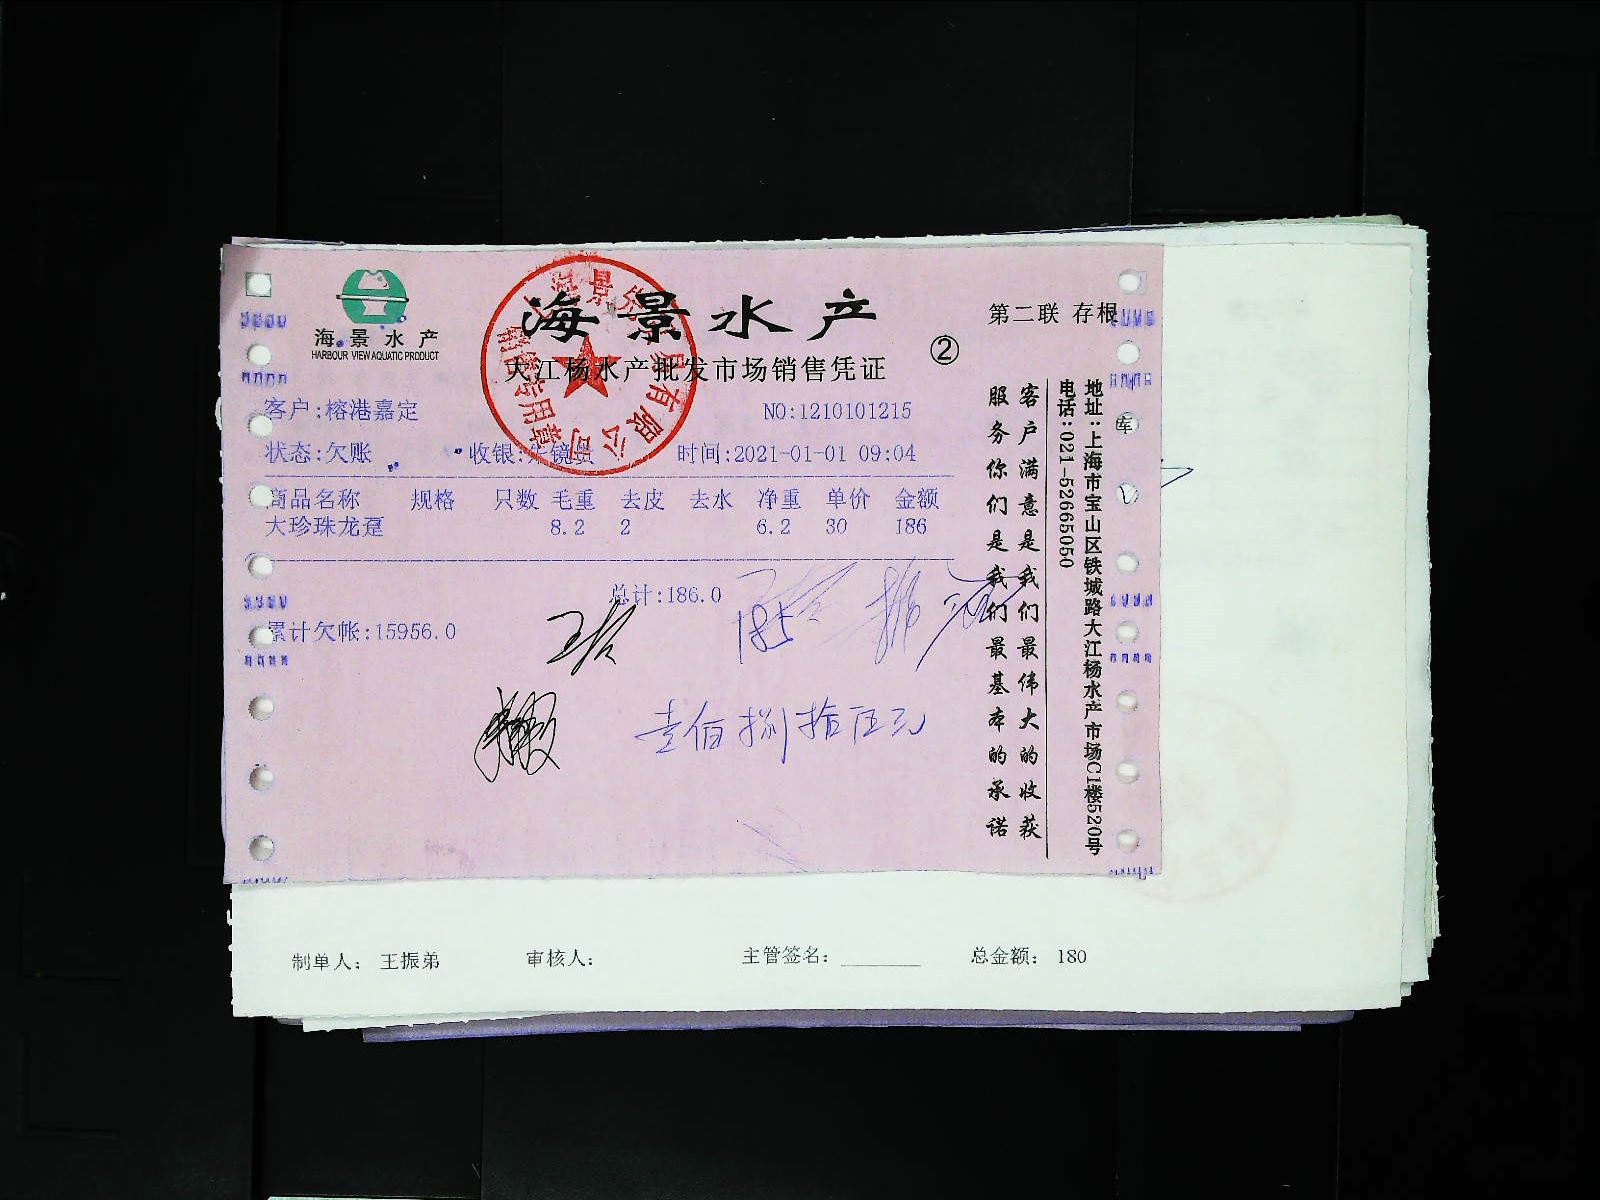 海景水产
HARBOUR VIEW AQUATIC PRODUCT
海景水产
大江杨水产批发市场销售凭证
②
第二联 存根
客户:榕港嘉定
NO:1210101215
状态:欠账
收银:
时间:2021-01-01 09:04
商品名称 规格 只数 毛重 去皮 去水 净重 单价 金额
大珍珠龙趸 8.2 2 6.2 30 186
总计:186.0
累计欠帐:15956.0
185
壹佰捌拾伍元
销售专用章
客户满意是我们最伟大的收获
服务你们是我们最基本的承诺
地址:上海市宝山区铁城路大江杨水产市场C1楼520号
电话:021-52665050
制单人: 王振弟 审核人: 主管签名: 总金额: 180